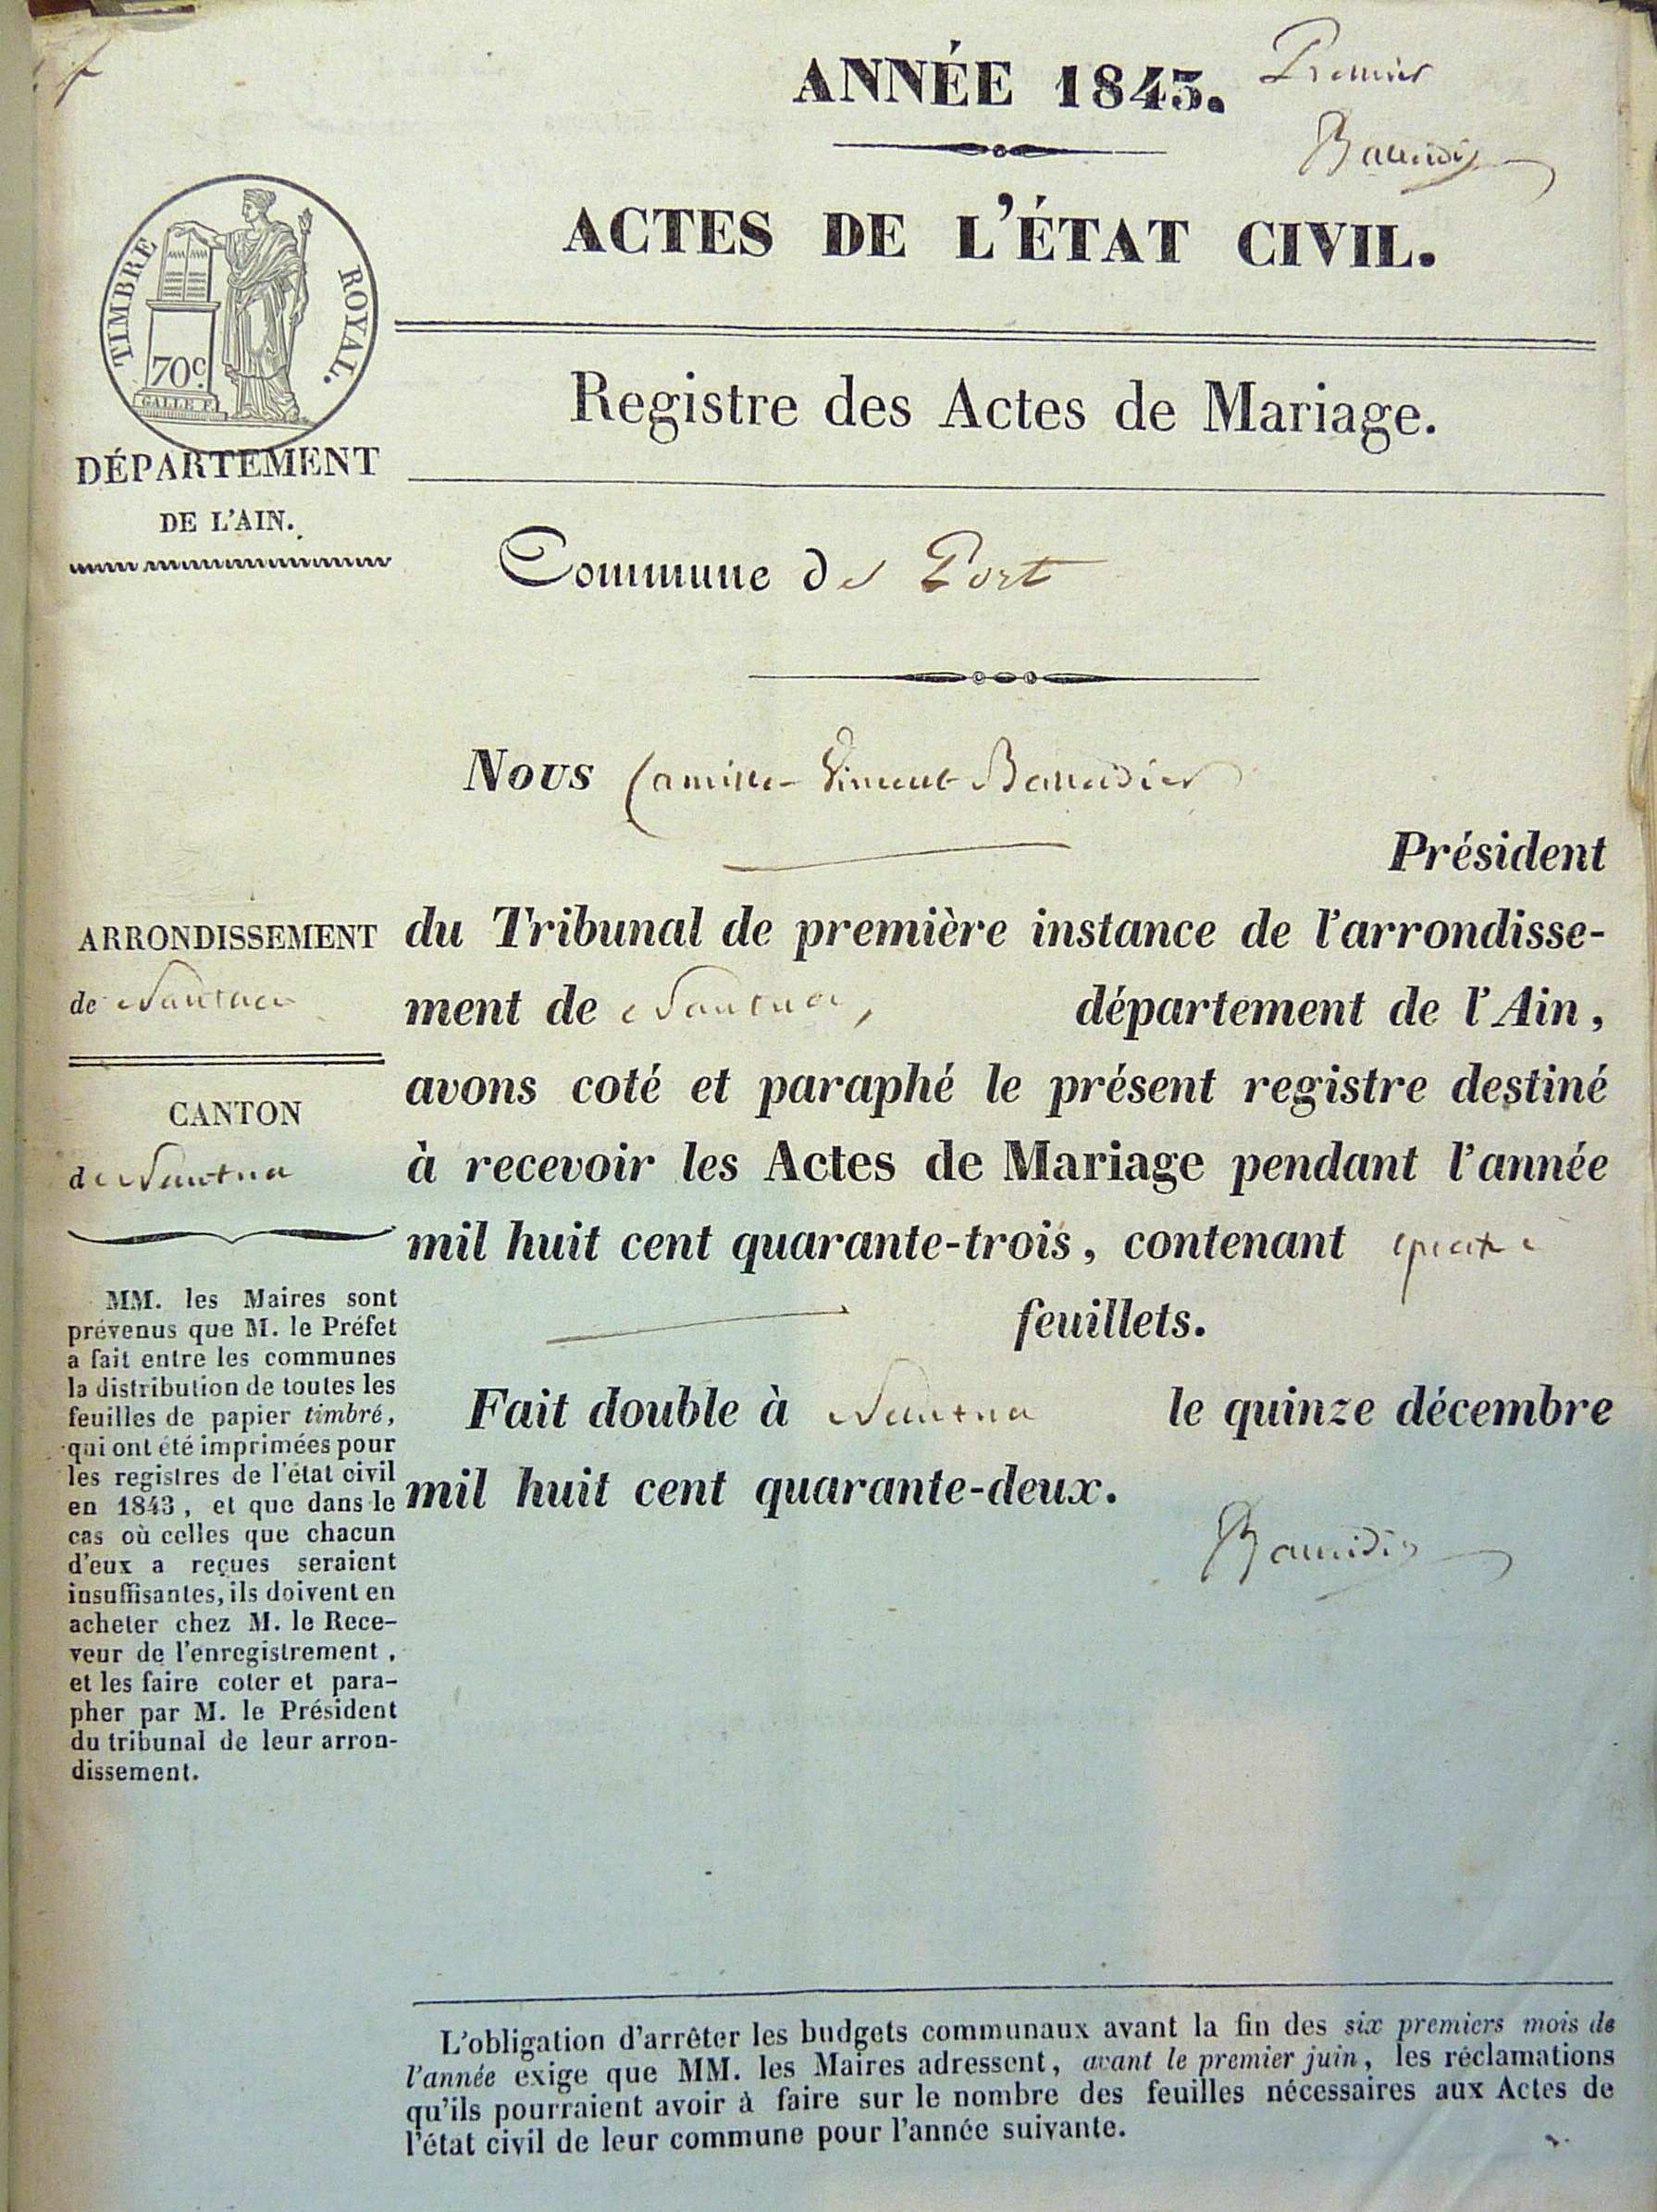 ANNÉE 1843.
Premier
ACTES DE L'ÉTAT CIVIL.
TIMBRE ROYAL.
70c.
GALLE F.
Registre des Actes de Mariage.
DÉPARTEMENT
DE L'AIN.
Commune de Port
Nous Camille-Vincent Baudier
Président
du Tribunal de première instance de l'arrondisse-
ment de Nantua, département de l'Ain,
avons coté et paraphé le présent registre destiné
à recevoir les Actes de Mariage pendant l'année
mil huit cent quarante-trois, contenant quatre
feuillets.
Fait double à Nantua le quinze décembre
mil huit cent quarante-deux.
ARRONDISSEMENT
de Nantua
CANTON
de Nantua
MM. les Maires sont
prévenus que M. le Préfet
a fait entre les communes
la distribution de toutes les
feuilles de papier timbré,
qui ont été imprimées pour
les registres de l'état civil
en 1843, et que dans le
cas où celles que chacun
d'eux a reçues seraient
insuffisantes, ils doivent en
acheter chez M. le Rece-
veur de l'enregistrement,
et les faire coter et para-
pher par M. le Président
du tribunal de leur arron-
dissement.
L'obligation d'arrêter les budgets communaux avant la fin des six premiers mois de
l'année exige que MM. les Maires adressent, avant le premier juin, les réclamations
qu'ils pourraient avoir à faire sur le nombre des feuilles nécessaires aux Actes de
l'état civil de leur commune pour l'année suivante.